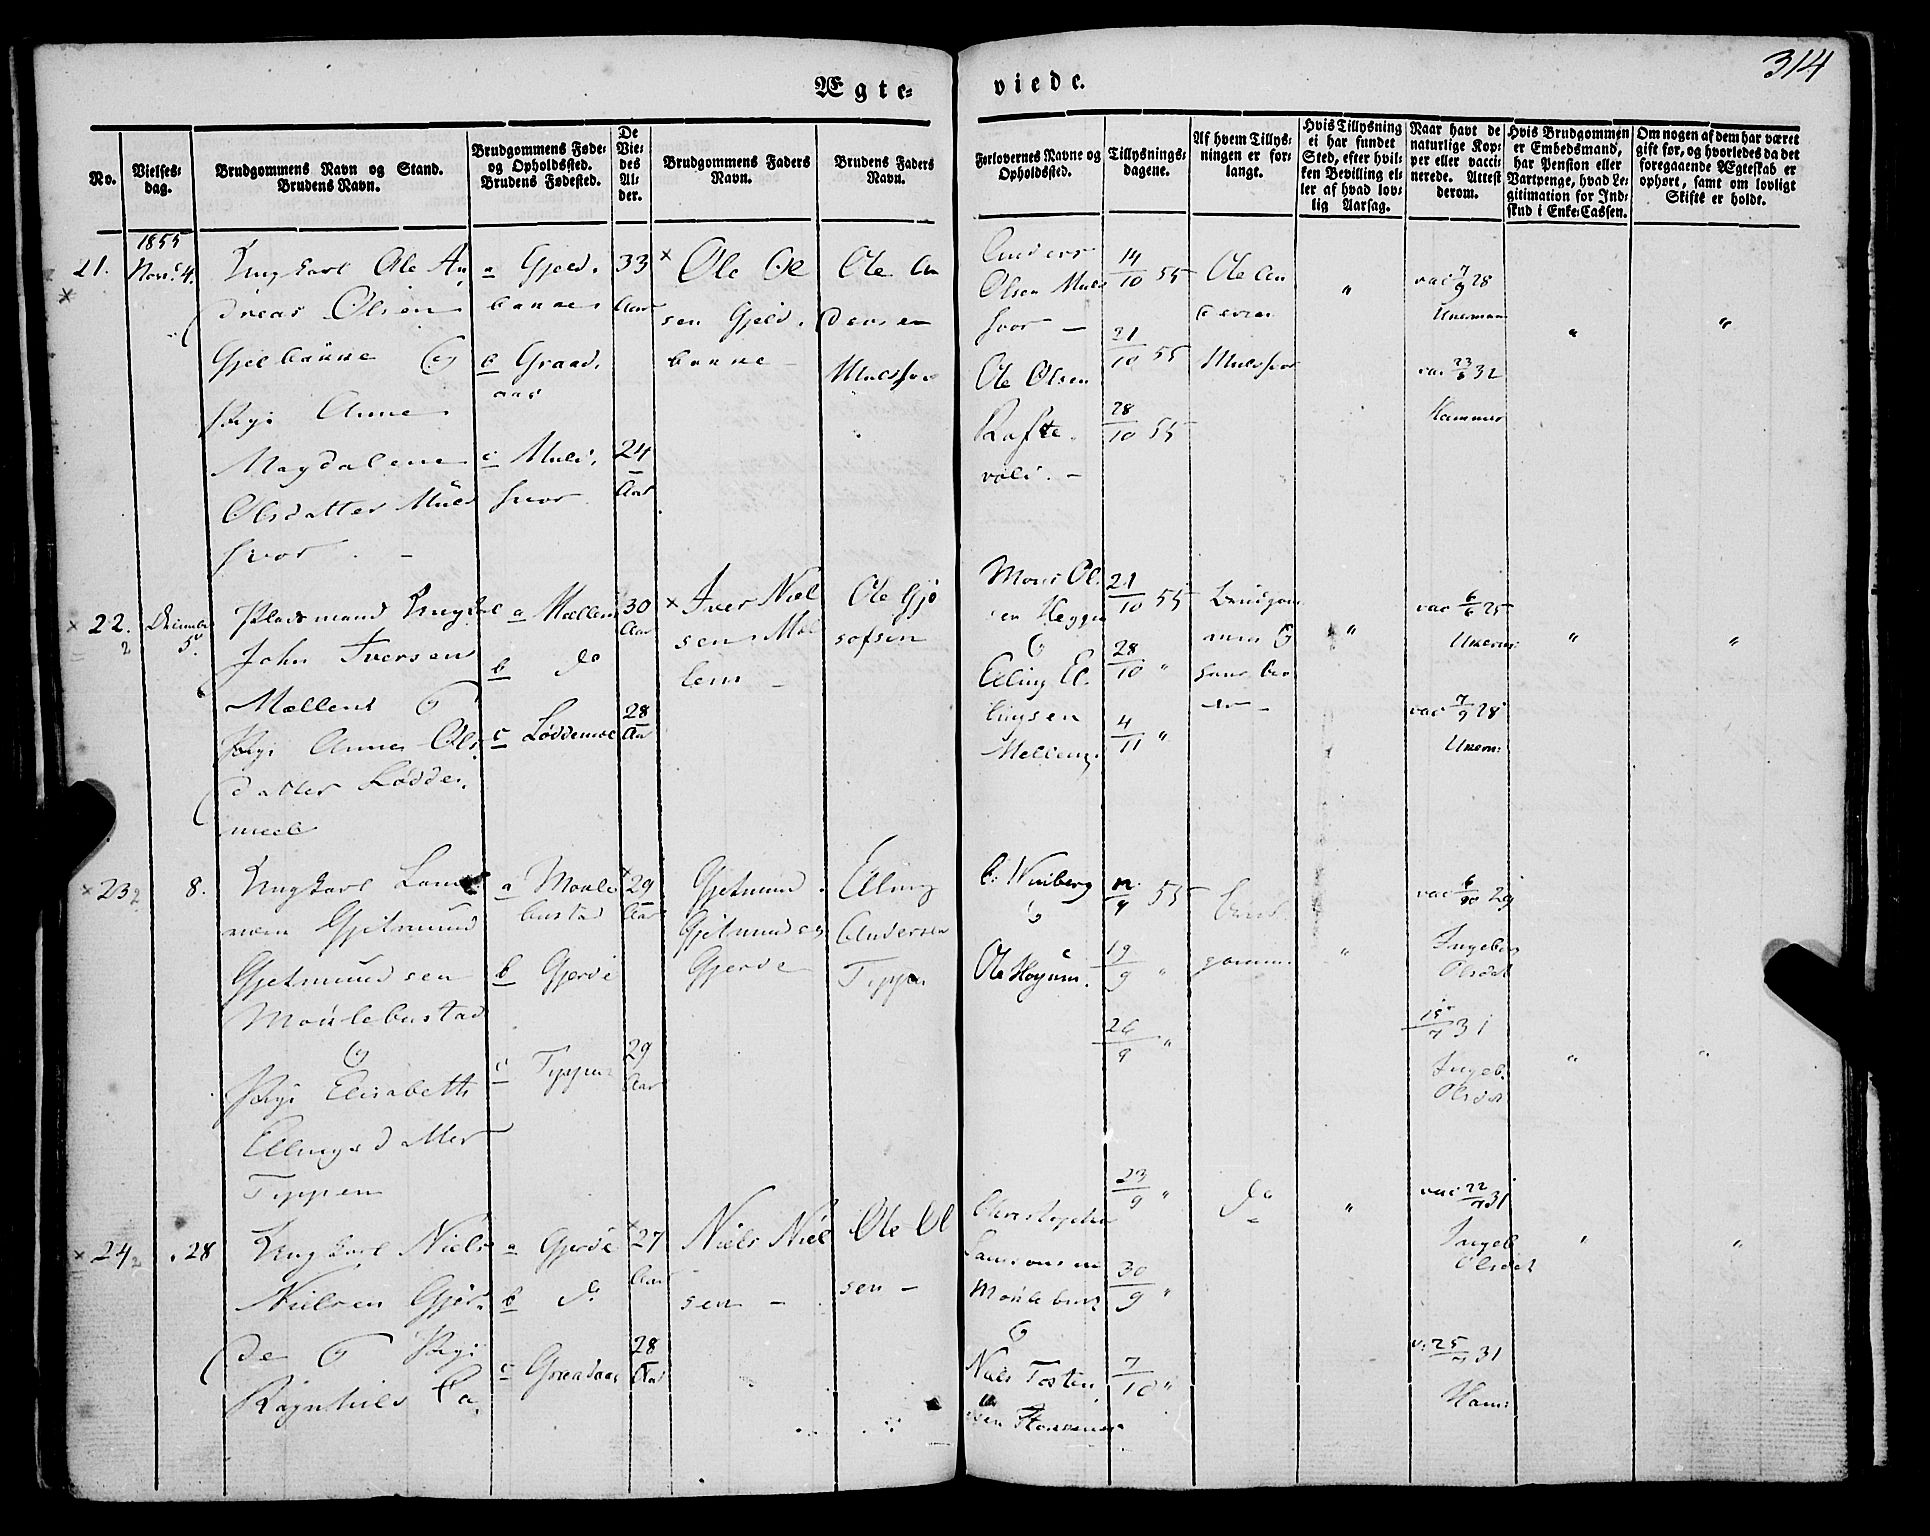 314
Ægte-
viede.
No.
Vielses-
dag.
Brudgommens Navn og Stand.
Brudens Navn.
Brudgommens Føde-
og Opholdssted.
Brudens Fødested.
De
Vie-
des
Al-
der.
Brudgommens Faders
Navn.
Brudens Faders
Navn.
Forlovernes Navne og
Opholdssted.
Tillysnings-
dagene.
Af hvem Tillys-
ningen er for-
langt.
Hvis Tillysning
ei har fundet
Sted, efter hvil-
ken Bevilling el-
ler af hvad lov-
lig Aarsag.
Naar havt de
naturlige Kop-
per eller vacci-
nerede. Attest
derom.
Hvis Brudgommen
er Embedsmand,
har Pension eller
Vartpenge, hvad Le-
gitimation for Ind-
skud i Enke-Cassen.
Om nogen af dem har været
gift før, og hvorledes da det
foregaaende Ægteskab er
ophørt, samt om lovligt
Skifte er holdt.
1855
21.
Novr. 4.
Ungkarl Ole An
dreas Olsen
Gjelbänne Og
Pige Anne
Magdalene
Olsdatter Muls
svor
a Gjeld.
bannes
b Graad.
aas
c Muls.
svor
33
Aar
24
Aar
Ole Ol
sen Gjeld.
banne
Ole An
dersen
Mulssvor
Anders
Olsen Muls
svor
Ole Olsen
Rafte.
vold.
14/10 55
21/10 55
28/10 55
Ole An
dersen
Mulssvor
"
vac 7/9 28
vac 23/6 32
Hammer
"
"
22.
December
5.
Pladsmand Ungkarl
John Iversen
Mællem Og
Pige Anne Ols
datter Lødde.
meel
a Mællem
b do
c Løddemel
30
Aar
28
Aar
Iver Niel
sen Mæl
lem
Ole Gjø
sofsen
Mons Ol.
sen Heggen
Og
Elling El.
lingsen
Mellem
21/10 55
28/10 "
4/11 "
Brudgom
men Og
hans bro
der
"
vac 6/6 25
vac 7/9 28
"
"
23
8.
Ungkarl
Gjetmund
Gjetmundsen
Moulebustad
Og
Pige Elisabeth
Ellingsdatter
Tippen
a Moule
bustad
b Gjerde
c Tippen
29
Aar
29
Aar
Gjetmund
Gjetmundsen
Gjerde
Elling
Andersen
Tippen
Og
Ole Hogum.
12/9 55
19/9 "
26/9 "
Brud.
gommen
"
vac 6/10 29
Ingeb.
Olsdat
15/7 31
Ingeb.
Olsdat
"
"
24
28
Ungkarl Niels
Nielsen Gjer.
de Og Pige
Ragnhild La
a Gjerde
b do
c Graadaas
27
Aar
28
Aar
Niels Niel
sen
Ole Ol
sen
Christopher
Samsonsen
Moulebust
Og
Niels Tosten.
sen
23/9 "
30/9 "
7/10 "
do
"
vac 22/7 31
Ingeb
Olsdat
v: 25/7 31
Ham:
"
"